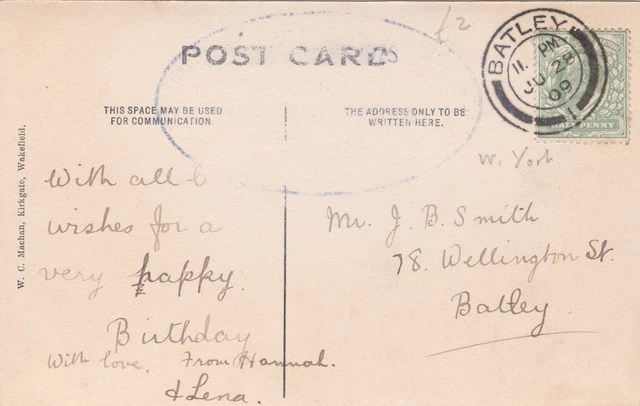 £2
POST CARD
BATLEY
11. PM
JU 28
09
1
HALFPENNY
THIS SPACE MAY BE USED
FOR COMMUNICATION.
THE ADDRESS ONLY TO BE
WRITTEN HERE.
W. C. Machan, Kirkgate, Wakefield.
W. York
With all
wishes for a
very happy.
Birthday
With love. From Hannah.
& Lena.
Mr. J. B. Smith
78. Wellington St.
Batley.